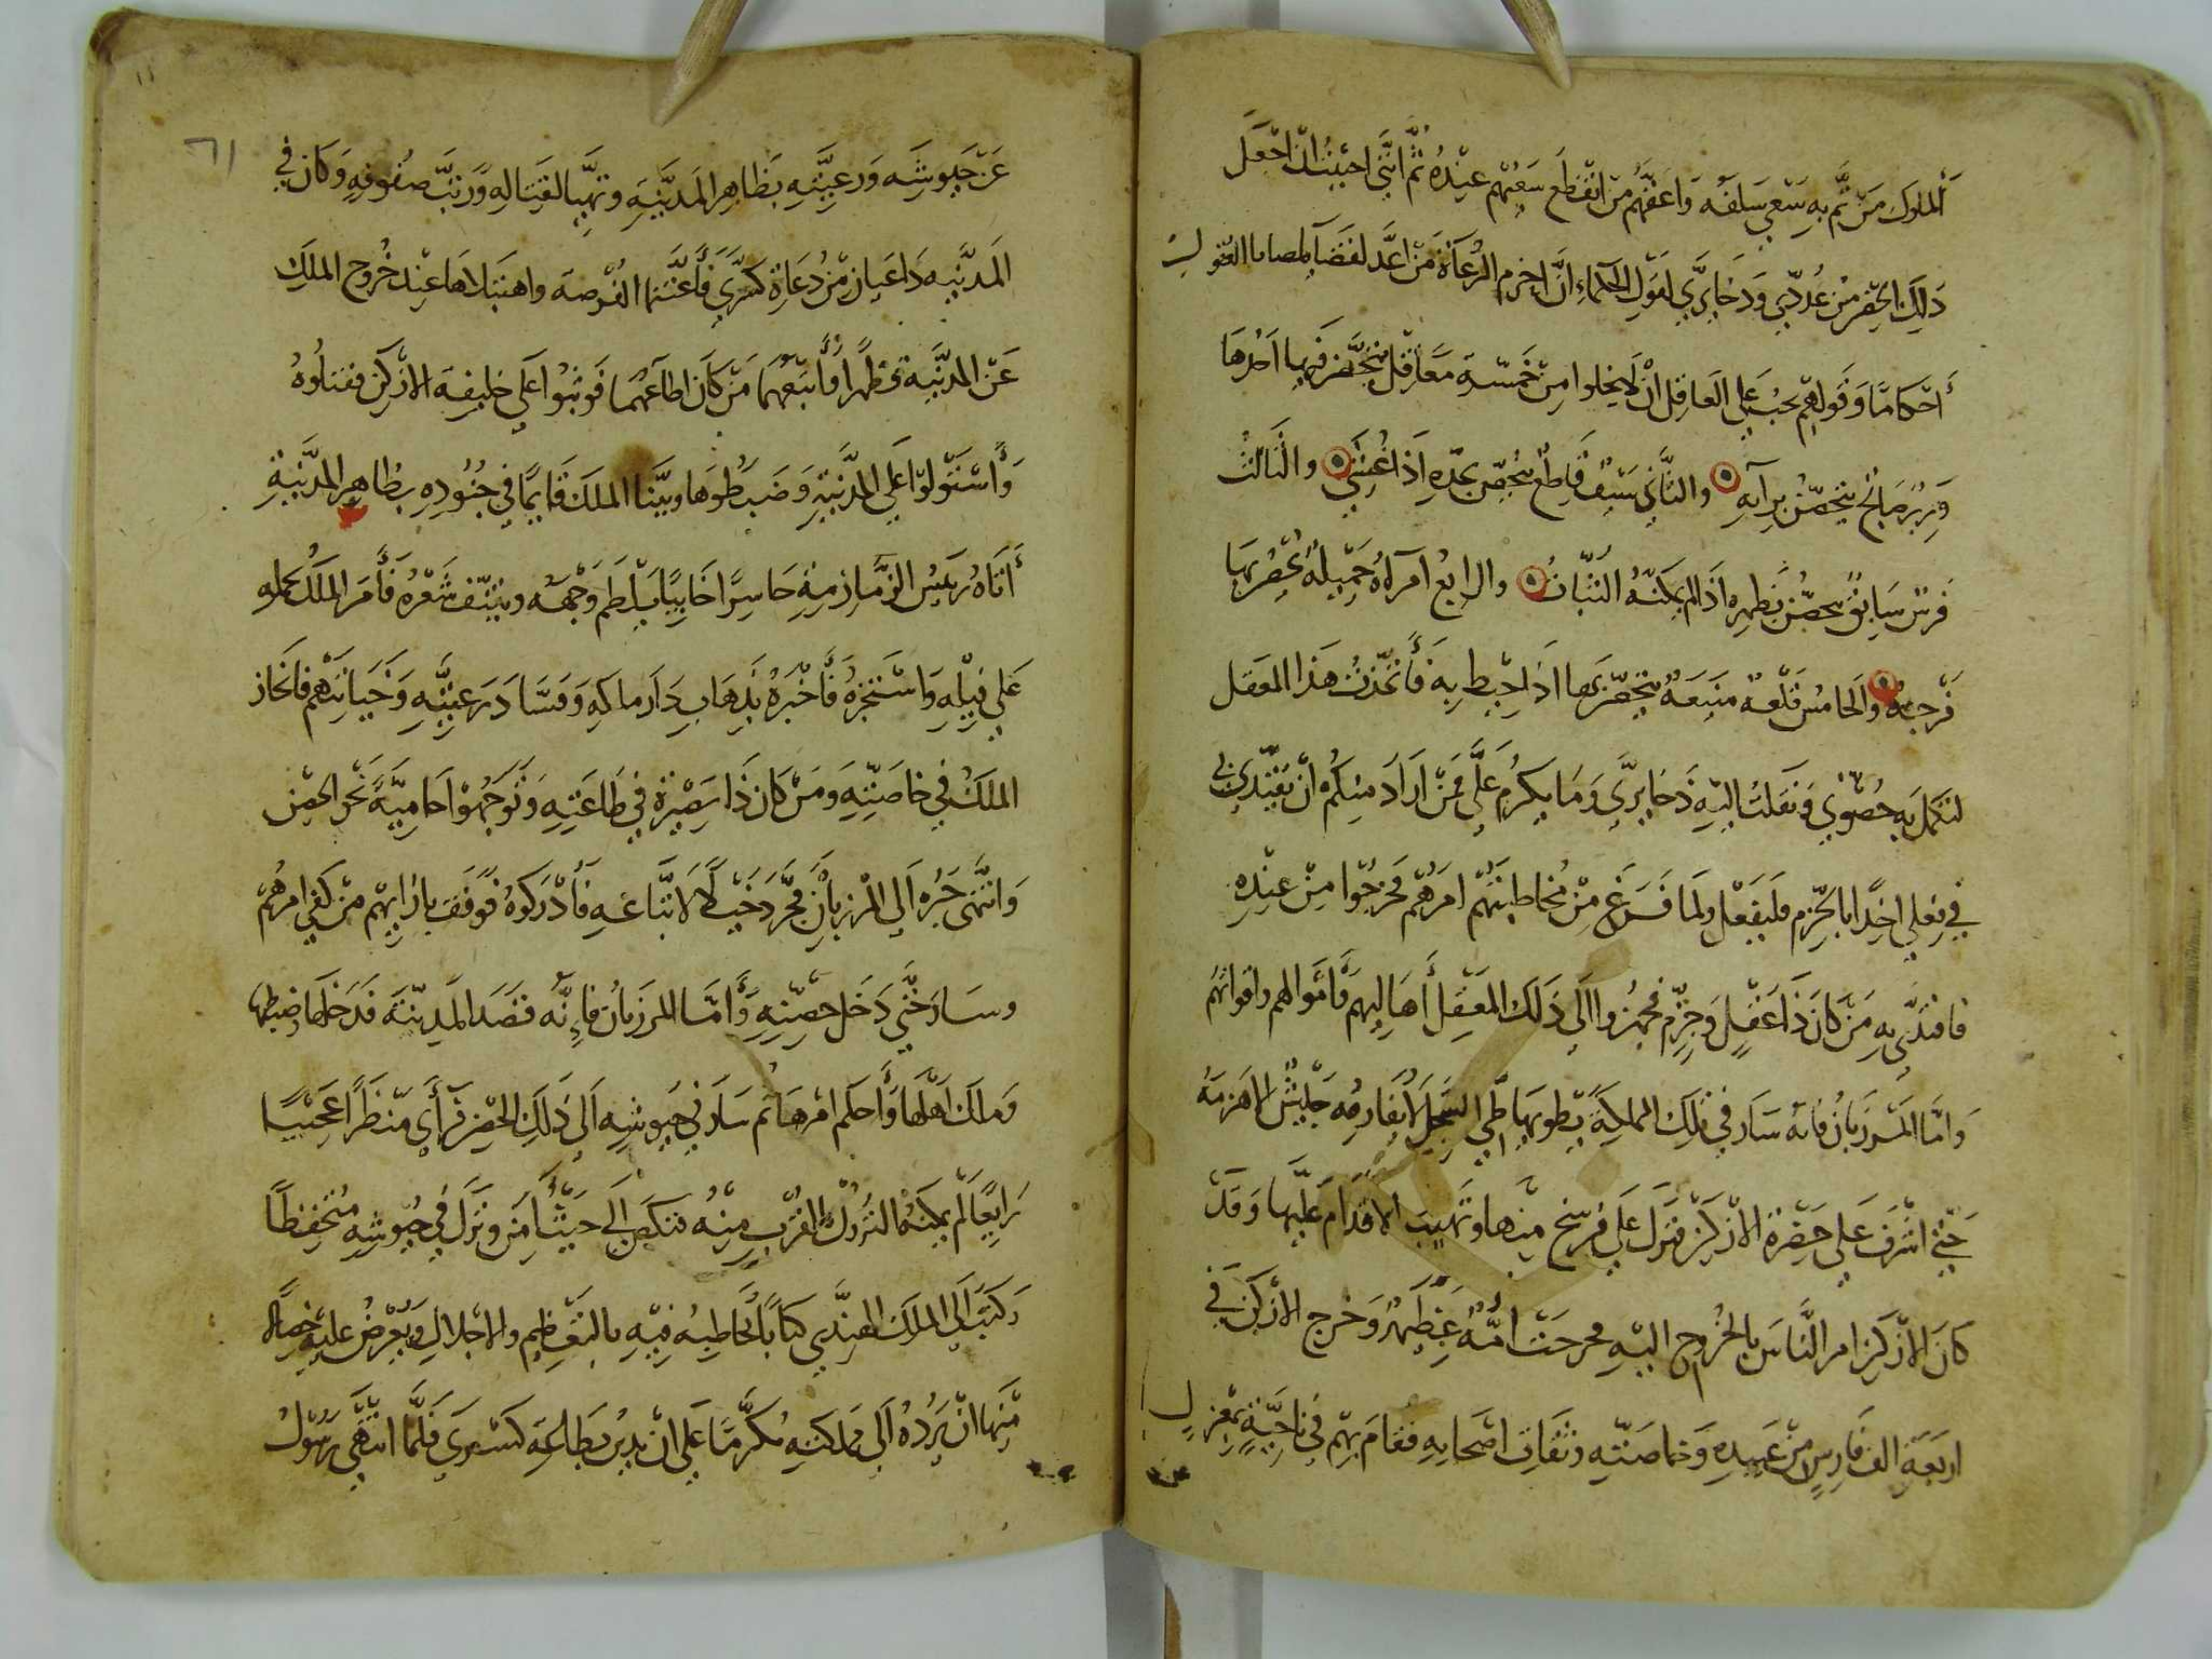 الملوك من تمم به سعي سلفه واعقهم من انقطع سعيهم عنده ثم انني احببت ان اجعل
ذلك الحصن من عُددي وذخايري لقول الحكماء ان احزم الرعاة من اعد لفضا
أحكاما وقولهم يجب علي العاقل ان لا يخلوا من خمسة معاقل يتحصن فيها احدها
وزير صالح يتحصن برآيه والثاني سيف قاطع يتحصن بحده اذا غشي والثالث
فرس سابق يتحصن بظهره اذا لم يمكنه الثبات والرابع آمرأة جميلة يحصن بها
فرجه والخامس قلعة منيعة يتحصن بها اذا احيط به فأتخذت هذا المعقل
لتكمل به حصوني ونقلت اليه ذخايري وما يكرم علي فمن اراد منكم ان يقتدي بي
في فعلي اخذا بالحزم فليفعل ولما فرغ من مخاطبتهم امرهم فخرجوا من عنده
فاقتدي به من كان ذا عقل وحزم فجهزوا الي ذلك المعقل أهاليهم وأموالهم واقواتهم
واما المرزبان فانه سار في تلك المملكة يطويها طي السجل لا يقارعه جيش الا هزمه
حتي اشرف علي حضرة الازكن فنزل علي فرسخ منها وتهيب الاقدام عليها وقد
كان الازكن امر الناس بالخروج اليه فخرجت امة عظيمة وخرج الازكن في
اربعة الف فارس من عبيده وخاصته وثقات اصحابه فقام بهم في ناحية بمعزل
٦١
عن جيوشه ورعيته بظاهر المدينة وتهيا لقتاله ورتب صفوفه وكان في
المدينة داعيان من دعاة كسري فأغتنما الفرصة واهتبلاها عند خروج الملك
عن المدينة فظهرا وأتبعهما من كان اطاعهما فوثبوا علي خليفة الازكن فقتلوه
وأستولوا علي المدينة وضبطوها وبينا الملك قايما في جنوده بظاهر المدينة
أتاه رييس الزمازمة حاسرا خايبا يلطم وجهه وينتف شعره فأمر الملك بحمله
علي فيله واستخبره فأخبره بذهاب دار ملكه وفساد رعيته وخيانتهم فانحاز
الملك في خاصته ومن كان ذا بصيرة في طاعته وتوجهوا حامية نحو الحصن
وانتهي خبره الي المرزبان فجرد خيلا لاتباعه فأدركوه فوقف بازايهم من كفي امرهم
وسار حتي دخل حصنه وأما المرزبان فإنه قصد المدينة فدخلها وضبطها
وملك اهلها وأحكم امرها ثم سار في جيوشه الي ذلك الحصن فرأي منظرا عجيبا
رايعا لم يمكنه النزول بالقرب منه فنكص الي حيث أمن ونزل في جيوشه متحفظا
وكتب الي الملك الهندي كتابا يخاطبه فيه بالتعظيم والاجلال ويعرض عليه خصالا
منها ان يرده الي مملكته مكرما علي ان يدين بطاعة كسري فلما انتهي رسول